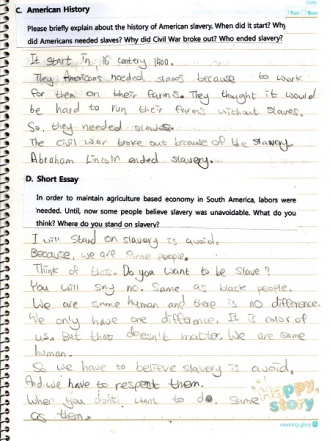 C. American History
Please briefly explain about the history of American slavery. When did it start? Why
did Americans needed slaves? Why did Civil War broke out? Who ended slavery?
It start in 16 century 1800.
They Americans needed slaves because to work
for them on their farms. They thought it would
be hard to run their farms without slaves.
So, they needed slaves.
The civil war broke out because of the slavery.
Abraham Lincoln ended slavery.
D. Short Essay
In order to maintain agriculture based economy in South America, labors were
needed. Until, now some people believe slavery was unavoidable. What do you
think? Where do you stand on slavery?
I will stand on slavery is avoid.
Because, we are same people.
Think of this. Do you want to be slave?
You will say no. Same as black people.
We are same human and there is no difference.
We only have one difference. It is color of
us. But that doesn't matter. We are same
human.
So we have to believe slavery is avoid,
And we have to respect them.
When you don't want to do, same
as them.
Happy
story
morning glory